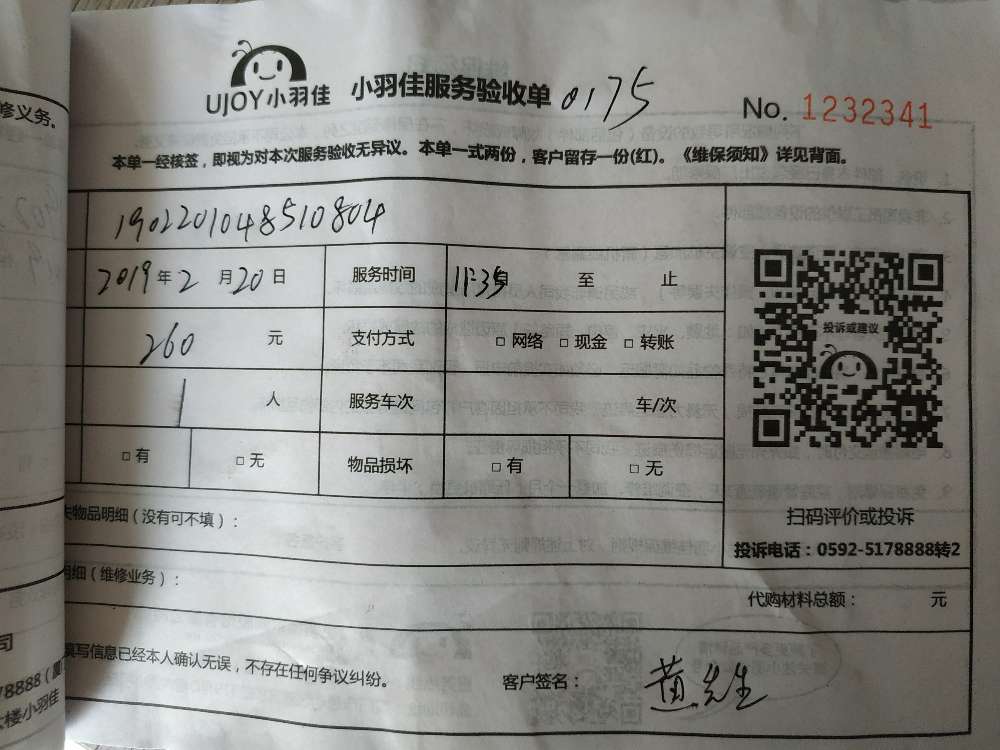 修义务。
UJOY小羽佳 小羽佳服务验收单 0175
No. 1232341
本单一经核签，即视为对本次服务验收无异议。本单一式两份，客户留存一份(红)。《维保须知》详见背面。
1902201048510804
2019年2月20日 服务时间 11:35 至 止
260 元 支付方式 □ 网络 □ 现金 □ 转账
投诉或建议
1 人 服务车次 车/次
□ 有 □ 无 物品损坏 □ 有 □ 无
失物品明细（没有可不填）：
扫码评价或投诉
投诉电话：0592-5178888转2
明细（维修业务）：
代购材料总额： 元
司
填写信息已经本人确认无误，不存在任何争议纠纷。
78888
楼小羽佳
客户签名： 黄先生